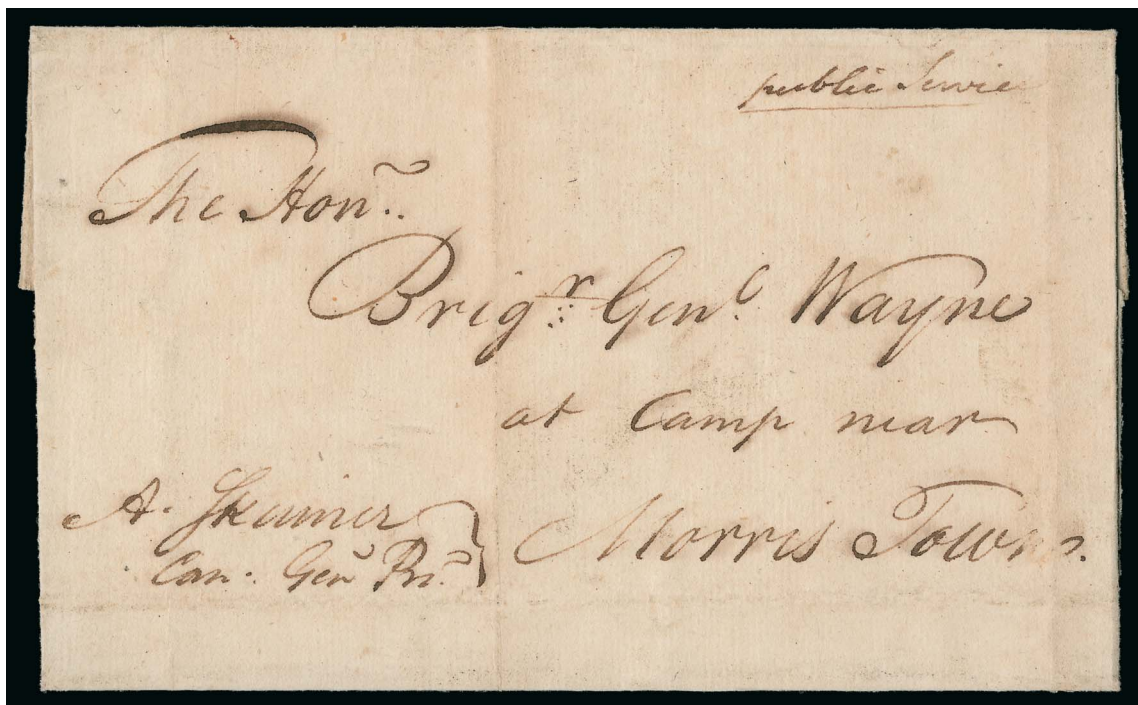 public Service
The Honl.
Brigr. Genl. Wayne
at Camp near
Morris Town.
A. Skinner
Com. Genl Pris.